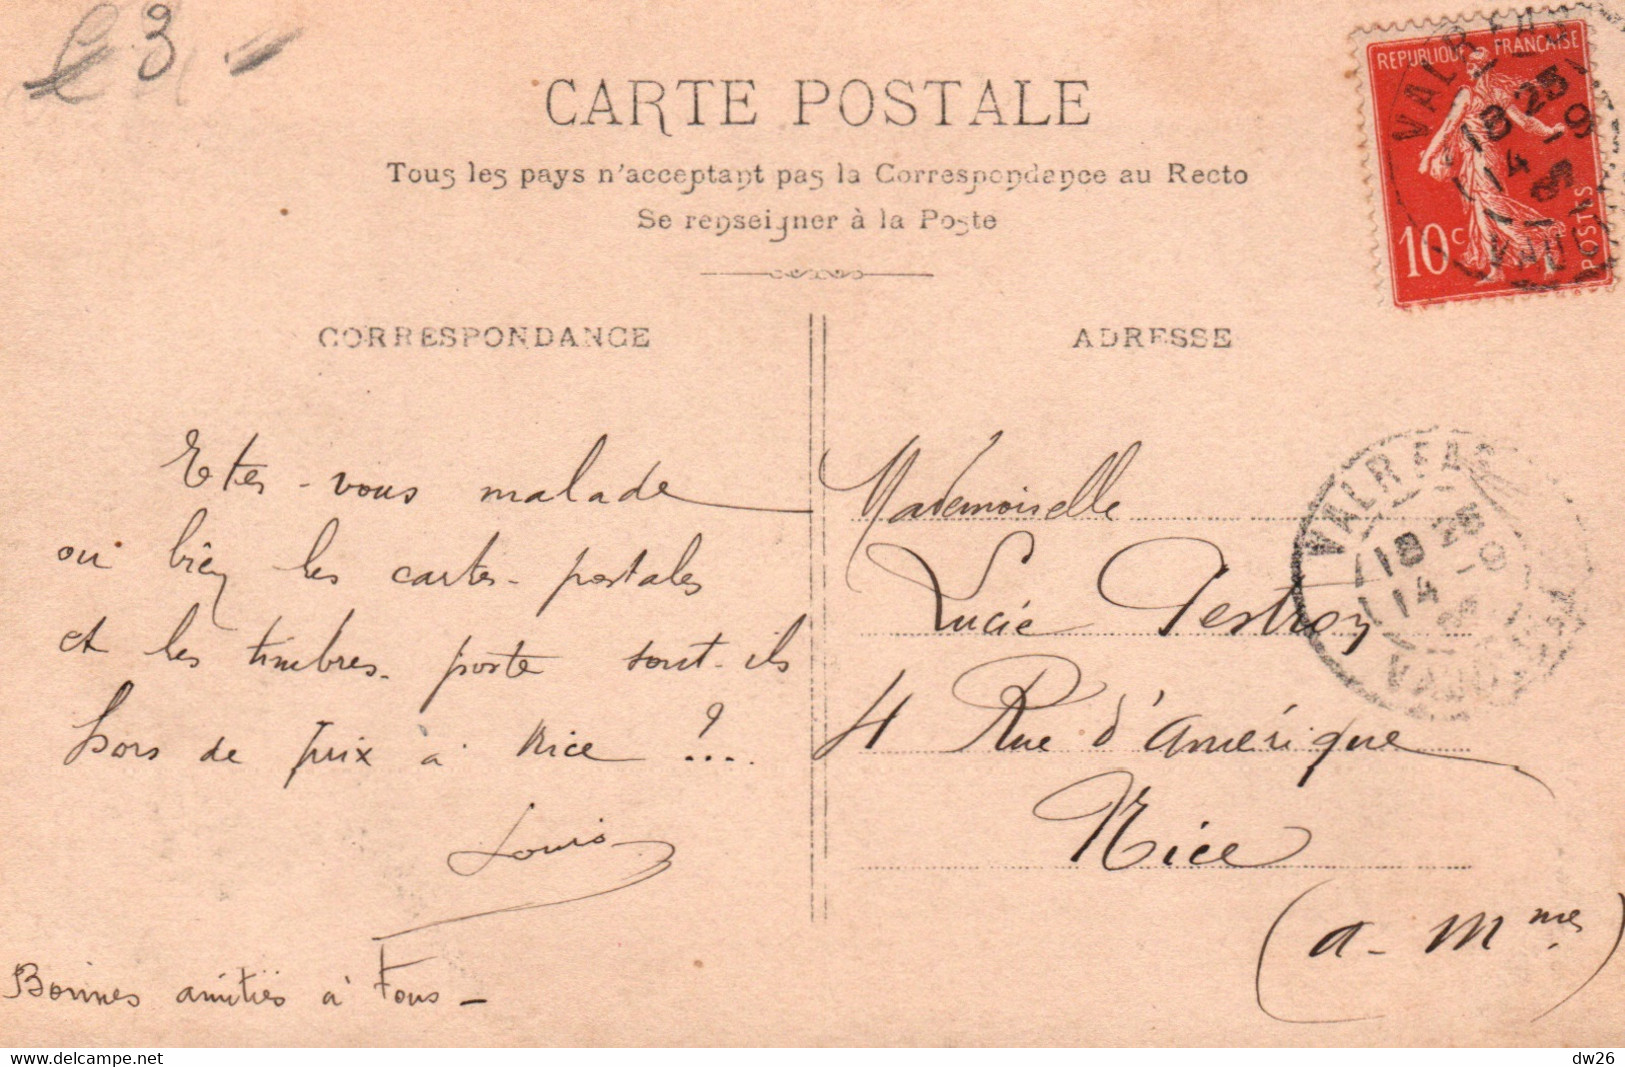 £ 3 -
CARTE POSTALE
Tous les pays n'acceptant pas la Correspondance au Recto
Se renseigner à la Poste
REPUBLIQUE FRANÇAISE
10c
POSTES
VALREAS
18 25
14 - 9
VAUCL
CORRESPONDANCE
ADRESSE
Etes-vous malade
ou bien les cartes-postales
et les timbres-poste sont-ils
hors de prix à Nice ?....
Louis
Bonnes amitiés à Tous -
Mademoiselle
Lucie
4 Rue d'Amérique
Nice
(A-Mmes)
VALREAS
18 25
14 - 9
VAUCLUSE
delcampe.net
dw26